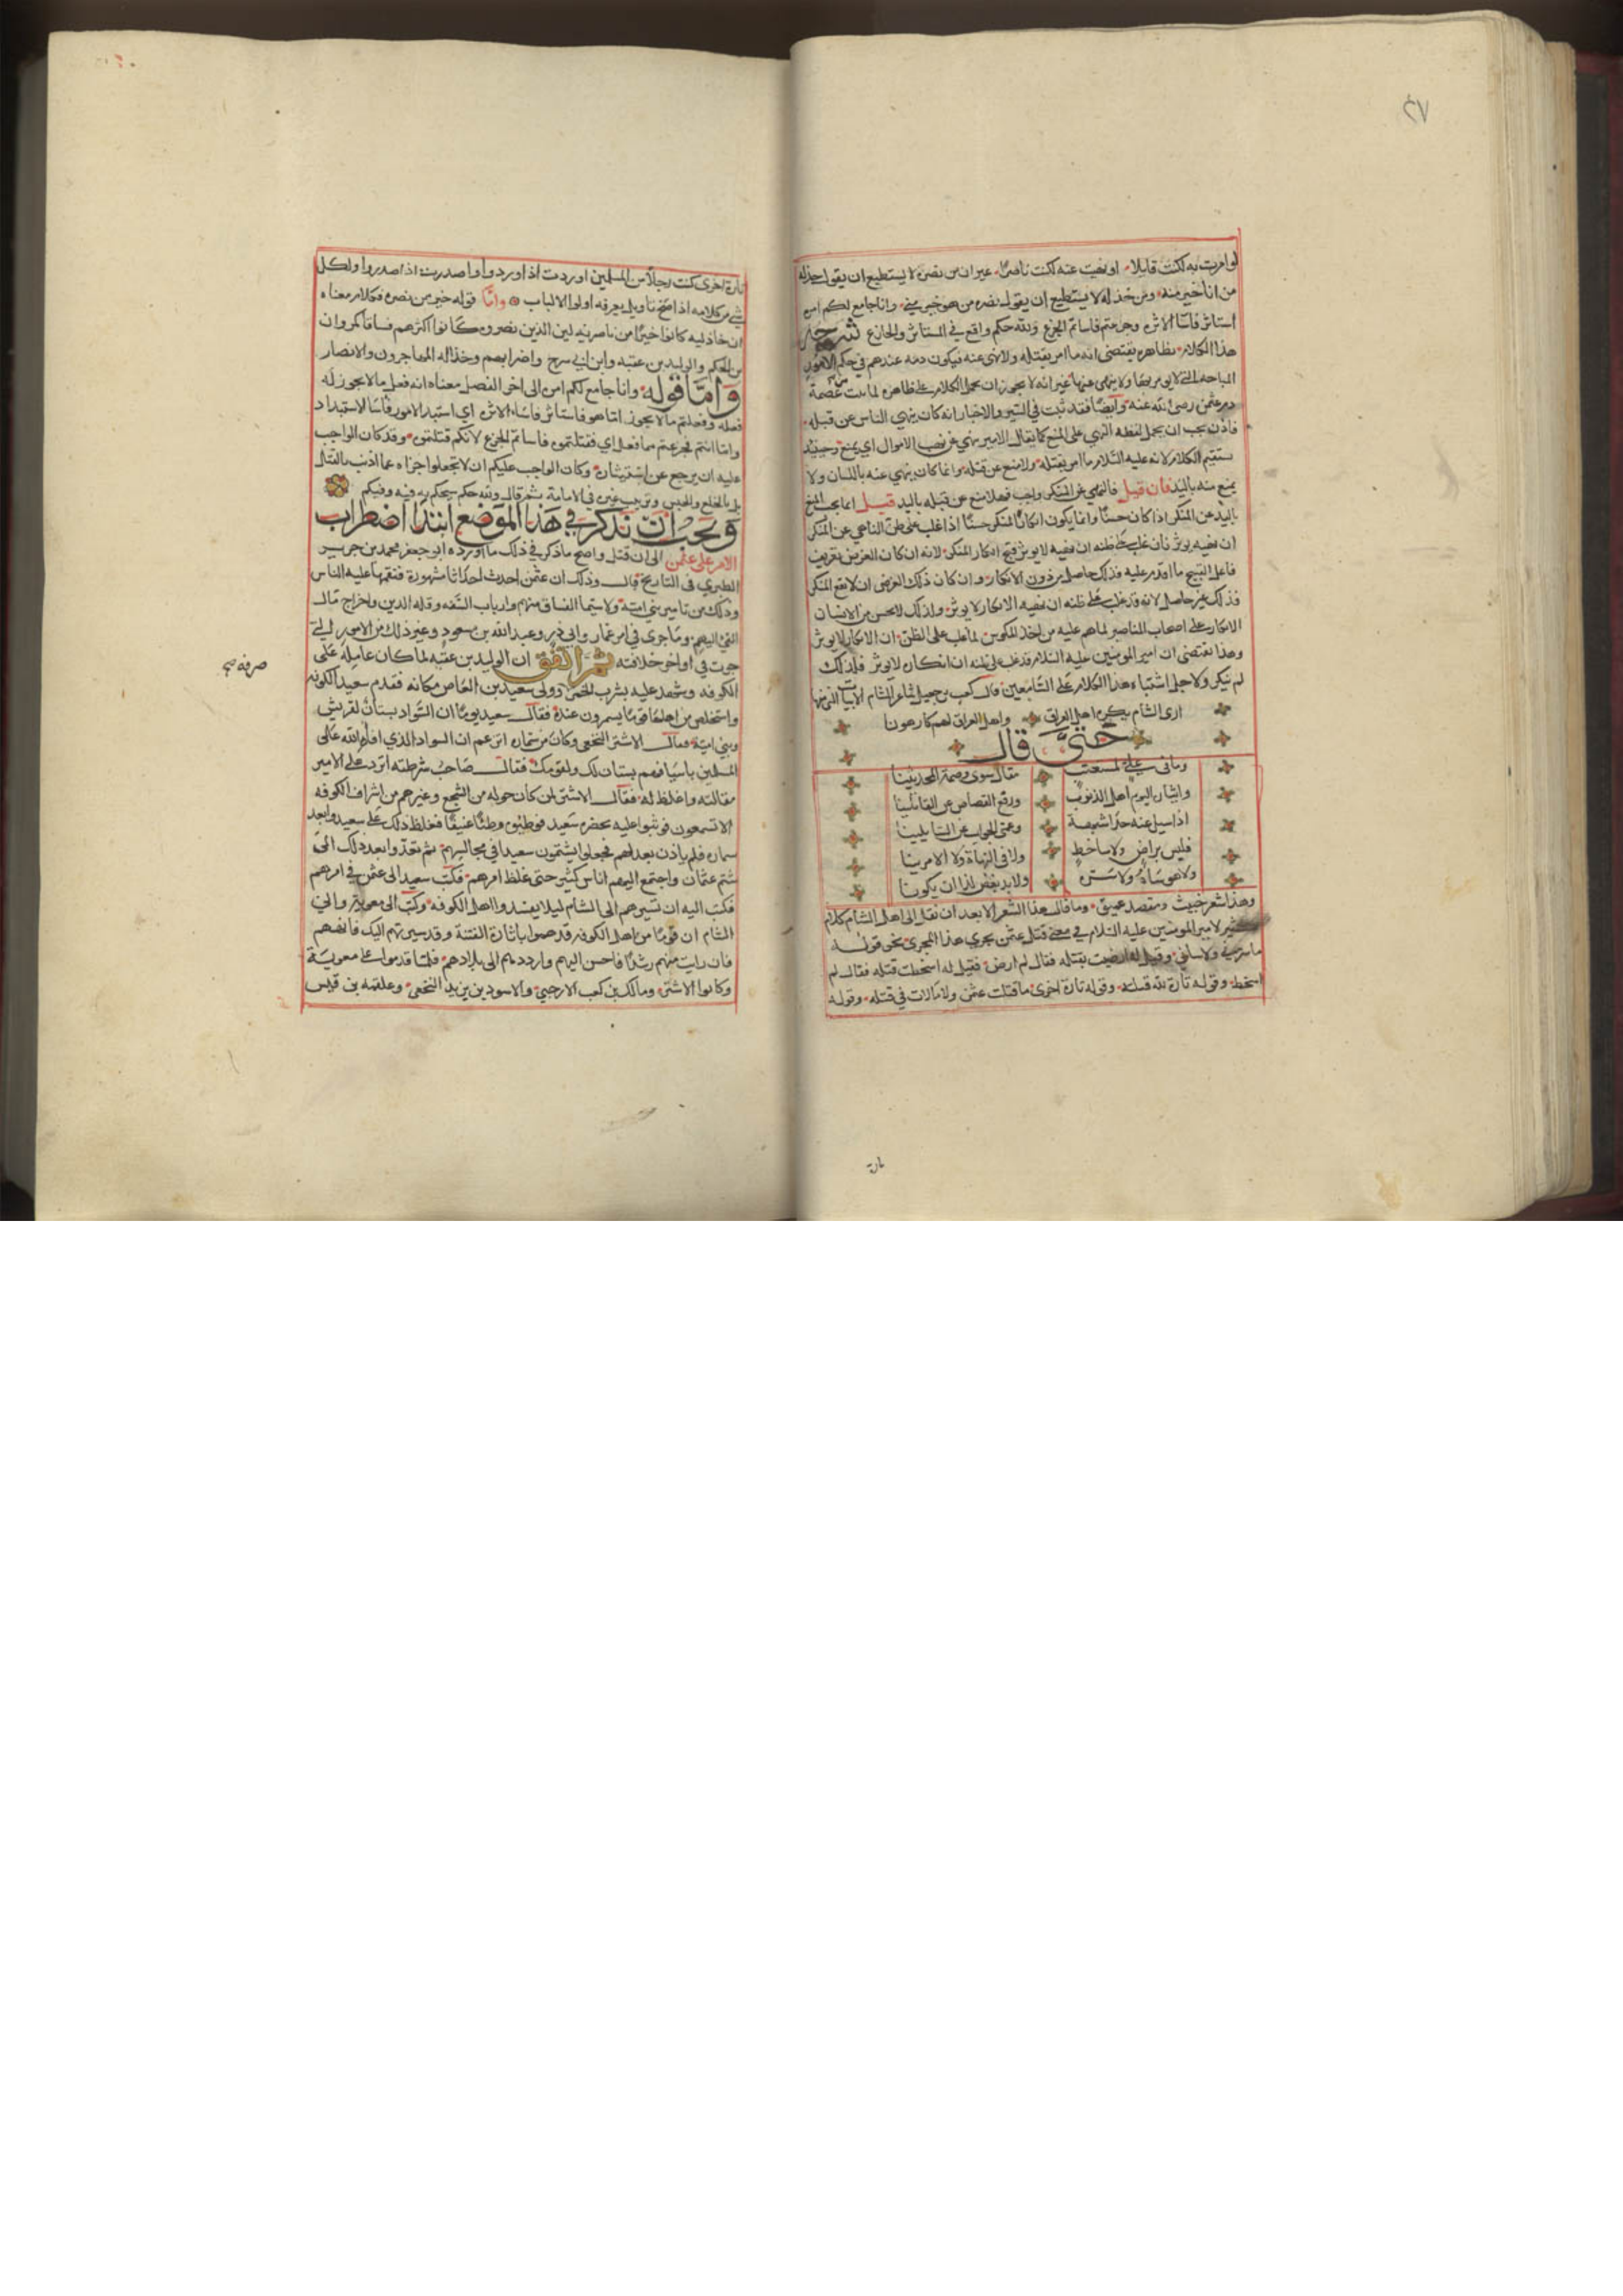 ٤٧
لو امرت به لكنت قاتلا او نهيت عنه لكنت ناصرًا غير ان من نصره لا يستطيع ان يقول خذله
من انا خير منه ومن خذله لا يستطيع ان يقول نصره من هو خير مني وانا جامع لكم امره
استاثر فاساء الاثرة وجزعتم فاساتم الجزع ولله حكم واقع في المستاثر والجازع شرحه
هذا الكلام بظاهره يقتضي انه ما امر بقتله ولا نهى عنه فيكون دمه عندهم في حكم الامور
المباحة التي لا يومر بها ولا ينهى عنها غير انه لا يجوز ان يحمل الكلام على ظاهره لما ثبت من عصمة
دم عثمن رضي الله عنه وايضًا فقد ثبت في السير والاخبار انه كان ينهى الناس عن قتله
فاذن يجب ان يحمل لفظه النهي على المنع كما يقال الامير ينهى عن نهب الاموال اي يمنع وحينئذ
يستقيم الكلام لانه عليه السلام ما امر بقتله ولا منع عن قتله وانما كان ينهى عنه باللسان ولا
يمنع منه باليد فان قيل فالنهي عن المنكر واجب فهلا منع عن قتله باليد قيل انما يجب المنع
باليد عن المنكر اذا كان حسنًا وانما يكون انكار المنكر حسنًا اذا غلب على ظن الناهي عن المنكر
ان نهيه يوثر فان غلب على ظنه ان نهيه لا يوثر قبح انكار المنكر لانه ان كان الغرض تعريف
فاعل القبيح ما اقدم عليه فذلك حاصل من دون الانكار وان كان ذلك الغرض ان لا يقع المنكر
فذلك غير حاصل لانه قد غلب على ظنه ان نهيه الانكار لا يوثر ولذلك لا يحسن من الانسان
الانكار على اصحاب المناصر لما هم عليه من اخذ المكوس لما غلب على الظن ان الانكار لا يوثر
وهذا يقتضي ان امير المومنين عليه السلام قد غلب على ظنه ان انكاره لا يوثر فلذلك
لم ينكر ولاجل اشتباه هذا الكلام على السامعين قال كعب بن جعيل شاعر الشام الابيات التي منها
ارى الشام يكره اهل العراق واهل العراق لهم كارهونا
حتى قال
وما في علي لمستعتب مقال سوى وصمة المحدثينا
وايثاره اليوم اهل الذنوب ورفع القصاص عن القاتلينا
اذا سيل عنه حدا شبهة وعمى الجواب عن السايلينا
فليس براض ولا ساخط ولا في النهاة ولا الامرينا
ولا هو ساه ولا سره ولا بد من بعض ذا ان يكونا
وهذا شعر خبيث ومقصد عميق وما قال هذا الشعر الا بعد ان نقل الى اهل الشام كلام
كثير لامير المومنين عليه السلام في معنى قتل عثمن يجري هذا المجرى نحو قوله
ما سرني ولا سائني وقيل له ارضيت بقتله فقال لم ارض فقيل له اسخطت قتله فقال لم
اسخط وقوله تارة الله قتله وقوله تارة اخرى ما قتلت عثمن ولا مالات في قتله وقوله
تارة
تارة اخرى كنت رجلاً من المسلمين اوردت اذ اوردوا واصدرت اذ اصدروا ولكل
شي من كلامه اذا صح تاويل يعرفه اولوا الالباب واما قوله خير من نصره فكلام معناه
ان خاذليه كانوا خيرًا من ناصريه لان الذين نصروه كانوا اكثرهم فساقا كمروان
بن الحكم والوليد بن عقبه وابن ابي سرح واضرابهم وخذاله المهاجرون والانصار
واما قوله وانا جامع لكم امره الى اخر الفصل معناه انه فعل ما لا يجوز له
فعله وفعلتم ما لا يجوز اما هو فاستاثر فاساء الاثرة اي استبد بالامور فاسا الاستبداد
واما انتم فجزعتم مما فعل اي فقتلتموه فاساتم الجزع لانكم قتلتموه وقد كان الواجب
عليه ان يرجع عن استيثاره وكان الواجب عليكم ان لا تجعلوا جزاه عما اذنب القتل
بل الخلع والحبس وترتيب غيره في الامامة ثم قال ولله حكم سيحكم به فيه وفيكم
ويجب ان نذكر في هذا الموضع ابتدا اضطراب
الامر على عثمن الى ان قتل واصح ما ذكر في ذلك ما اورده ابو جعفر محمد بن جرير
الطبري في التاريخ قال وذلك ان عثمن احدث احداثا مشهورة فنقمها عليه الناس
وذلك من تامير بني امية ولا سيما الفساق منهم وارباب السفه وقله الدين واخراج مال
الفيء اليهم وما جرى في امر عمار وابي ذر وعبد الله بن مسعود وغير ذلك من الامور التي
جرت في اواخر خلافته ثم اتفق ان الوليد بن عقبه لما كان عامله على
الكوفه وشهد عليه بشرب الخمر وولى سعيد بن العاص مكانه فقدم سعيد الكوفه
واستخلص من اهلها قومًا يسمرون عنده فقال سعيد يومًا ان السواد بستان لقريش
وبني امية فقال الاشتر النخعي وكان من سماره اتزعم ان السواد الذي افاه الله على
المسلمين باسيافهم بستان لك ولقومك فقال صاحب شرطته اترد على الامير
مقالته واغلظ له فقال الاشتر لمن كان حوله من النخع وغيرهم من اشراف الكوفه
الا تسمعون فوثبوا عليه بحضره سعيد فوطئوه وطئًا عنيفًا فغلظ ذلك على سعيد وابعد
سماره فلم ياذن بعد لهم فجعلوا يشتمون سعيدا في مجالسهم ثم تعدوا بعد ذلك الى
شتم عثمان واجتمع اليهم اناس كثير حتى غلظ امرهم فكتب سعيد الى عثمن في امرهم
فكتب اليه ان تسيرهم الى الشام ليلا يفسدوا اهل الكوفه وكتب الى معوية والي
الشام ان قومًا من اهل الكوفه قد هموا باثارة الفتنة وقد سيرتهم اليك فانههم
فان رايت منهم رشدًا فاحسن اليهم وارددهم الى بلادهم فلما قدموا على معوية
وكانوا الاشتر ومالك بن كعب الارحبي والاسود بن يزيد النخعي وعلقمه بن قيس
صرفه